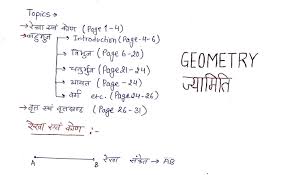 Topics →
→ रेखा एवं कोण (Page 1-4)
→ बहुभुज → Introduction (Page-4-6)
→ त्रिभुज (Page 6-20)
→ चतुर्भुज (Page 21-24)
→ आयत (Page-24)
→ वर्ग etc. (Page 24-26)
→ वृत्त एवं वृत्तखण्ड (Page 26-31)
GEOMETRY
ज्यामिति
रेखा एवं कोण :-
A B रेखा संकेत → AB